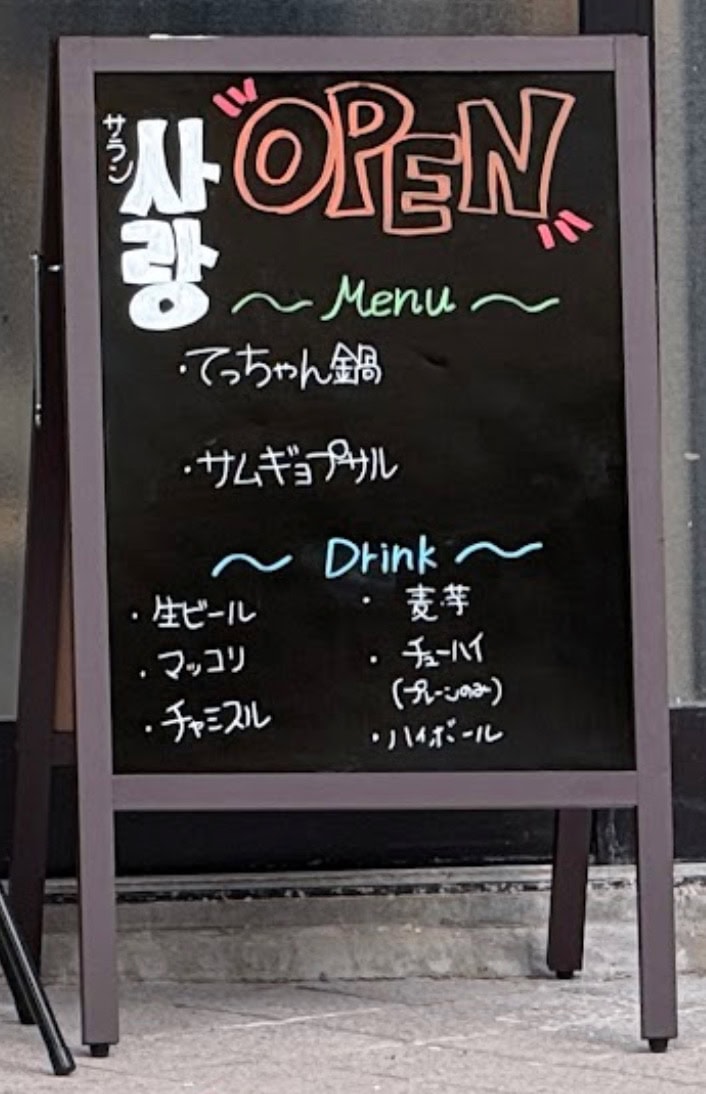 サラン
사랑
OPEN
～ Menu ～
・てっちゃん鍋
・サムギョプサル
～ Drink ～
・生ビール
・マッコリ
・チャミスル
・麦・芋
・チューハイ
(プレーンのみ)
・ハイボール